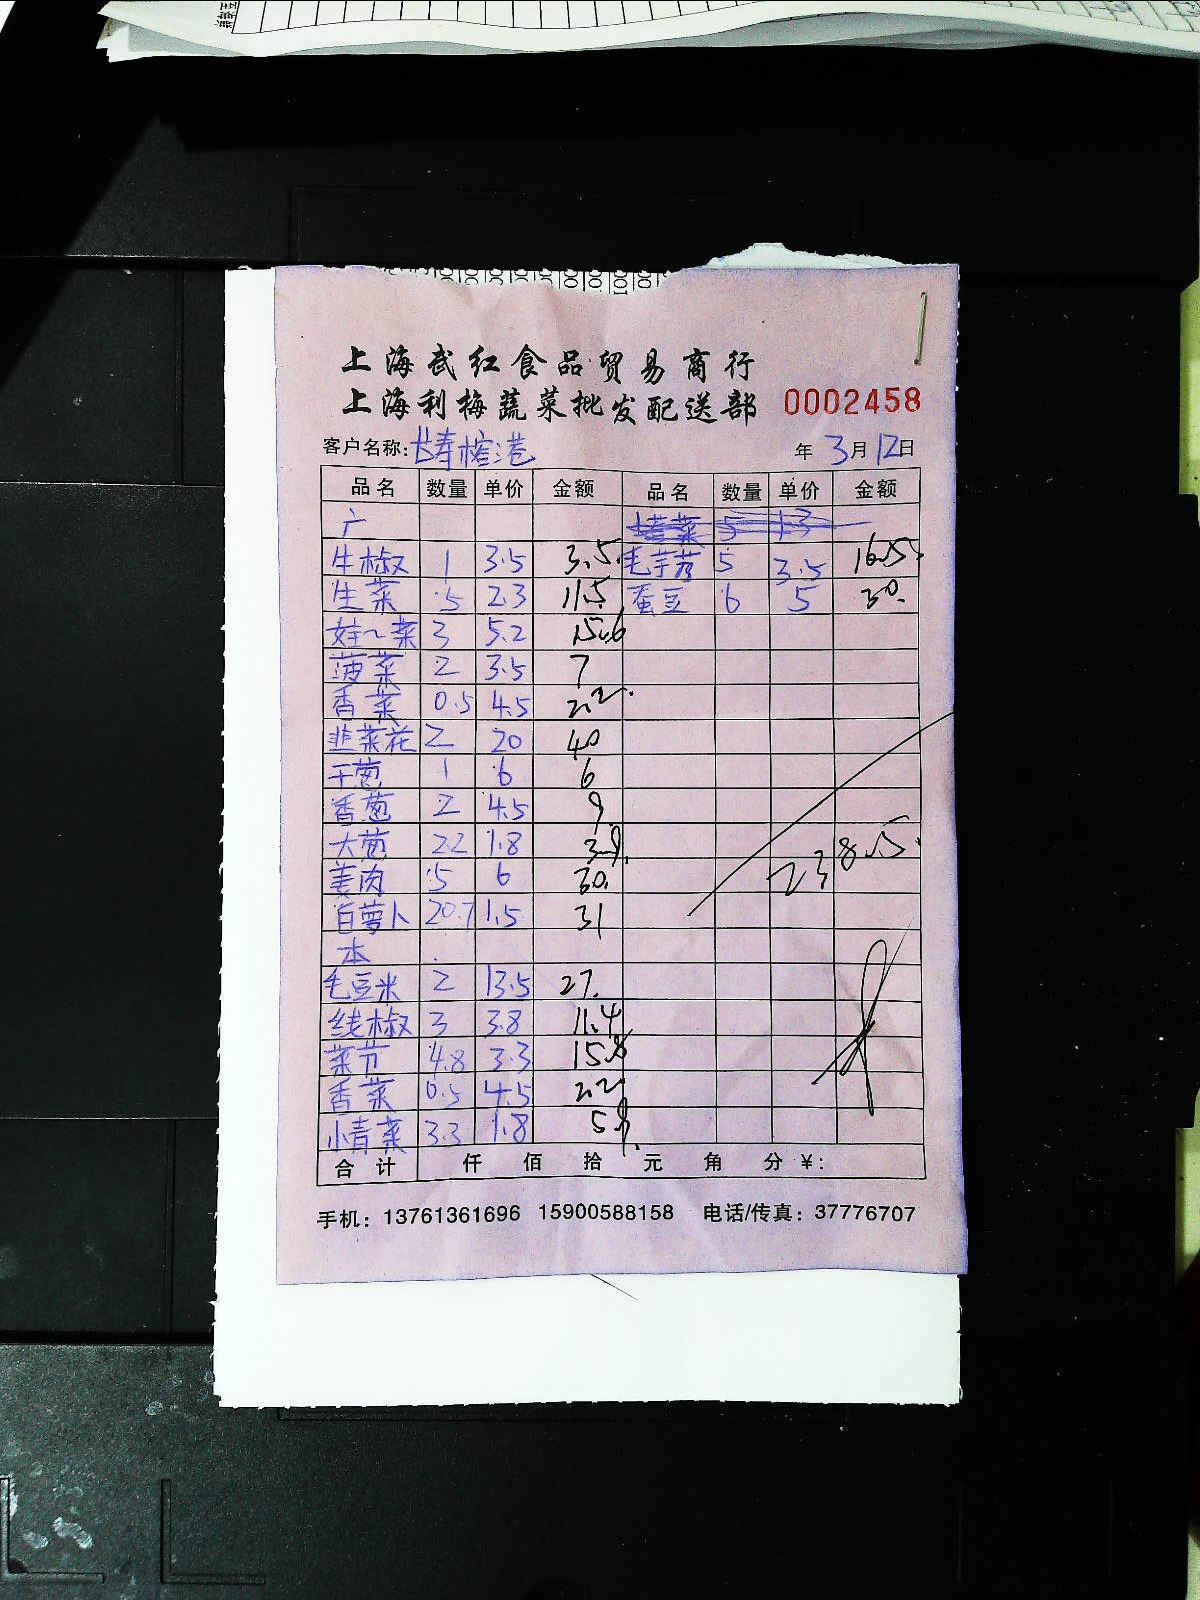 上海武红食品贸易商行
上海利梅蔬菜批发配送部 0002458
客户名称: 长寿榕港 年 3月12日
品名 数量 单价 金额 品名 数量 单价 金额
广
牛椒 1 3.5 3.5 毛芋艿 5 3.5 16.5
生菜 5 2.3 11.5 蚕豆 6 5 30.
娃~菜 3 5.2 15.6
菠菜 2 3.5 7
香菜 0.5 4.5 2.2.
韭菜花 2 20 40
干葱 1 6 6
香葱 2 4.5 9
大葱 2.2 1.8 3.9.
姜肉 5 6 30.
白萝卜 20.7 1.5 31
238.5.
本
毛豆米 2 13.5 27.
线椒 3 3.8 11.4
菜节 4.8 3.3 15.8
香菜 0.5 4.5 2.2
小青菜 3.3 1.8 5.9.
合计 仟 佰 拾 元 角 分 ¥:
手机: 13761361696 15900588158 电话/传真: 37776707